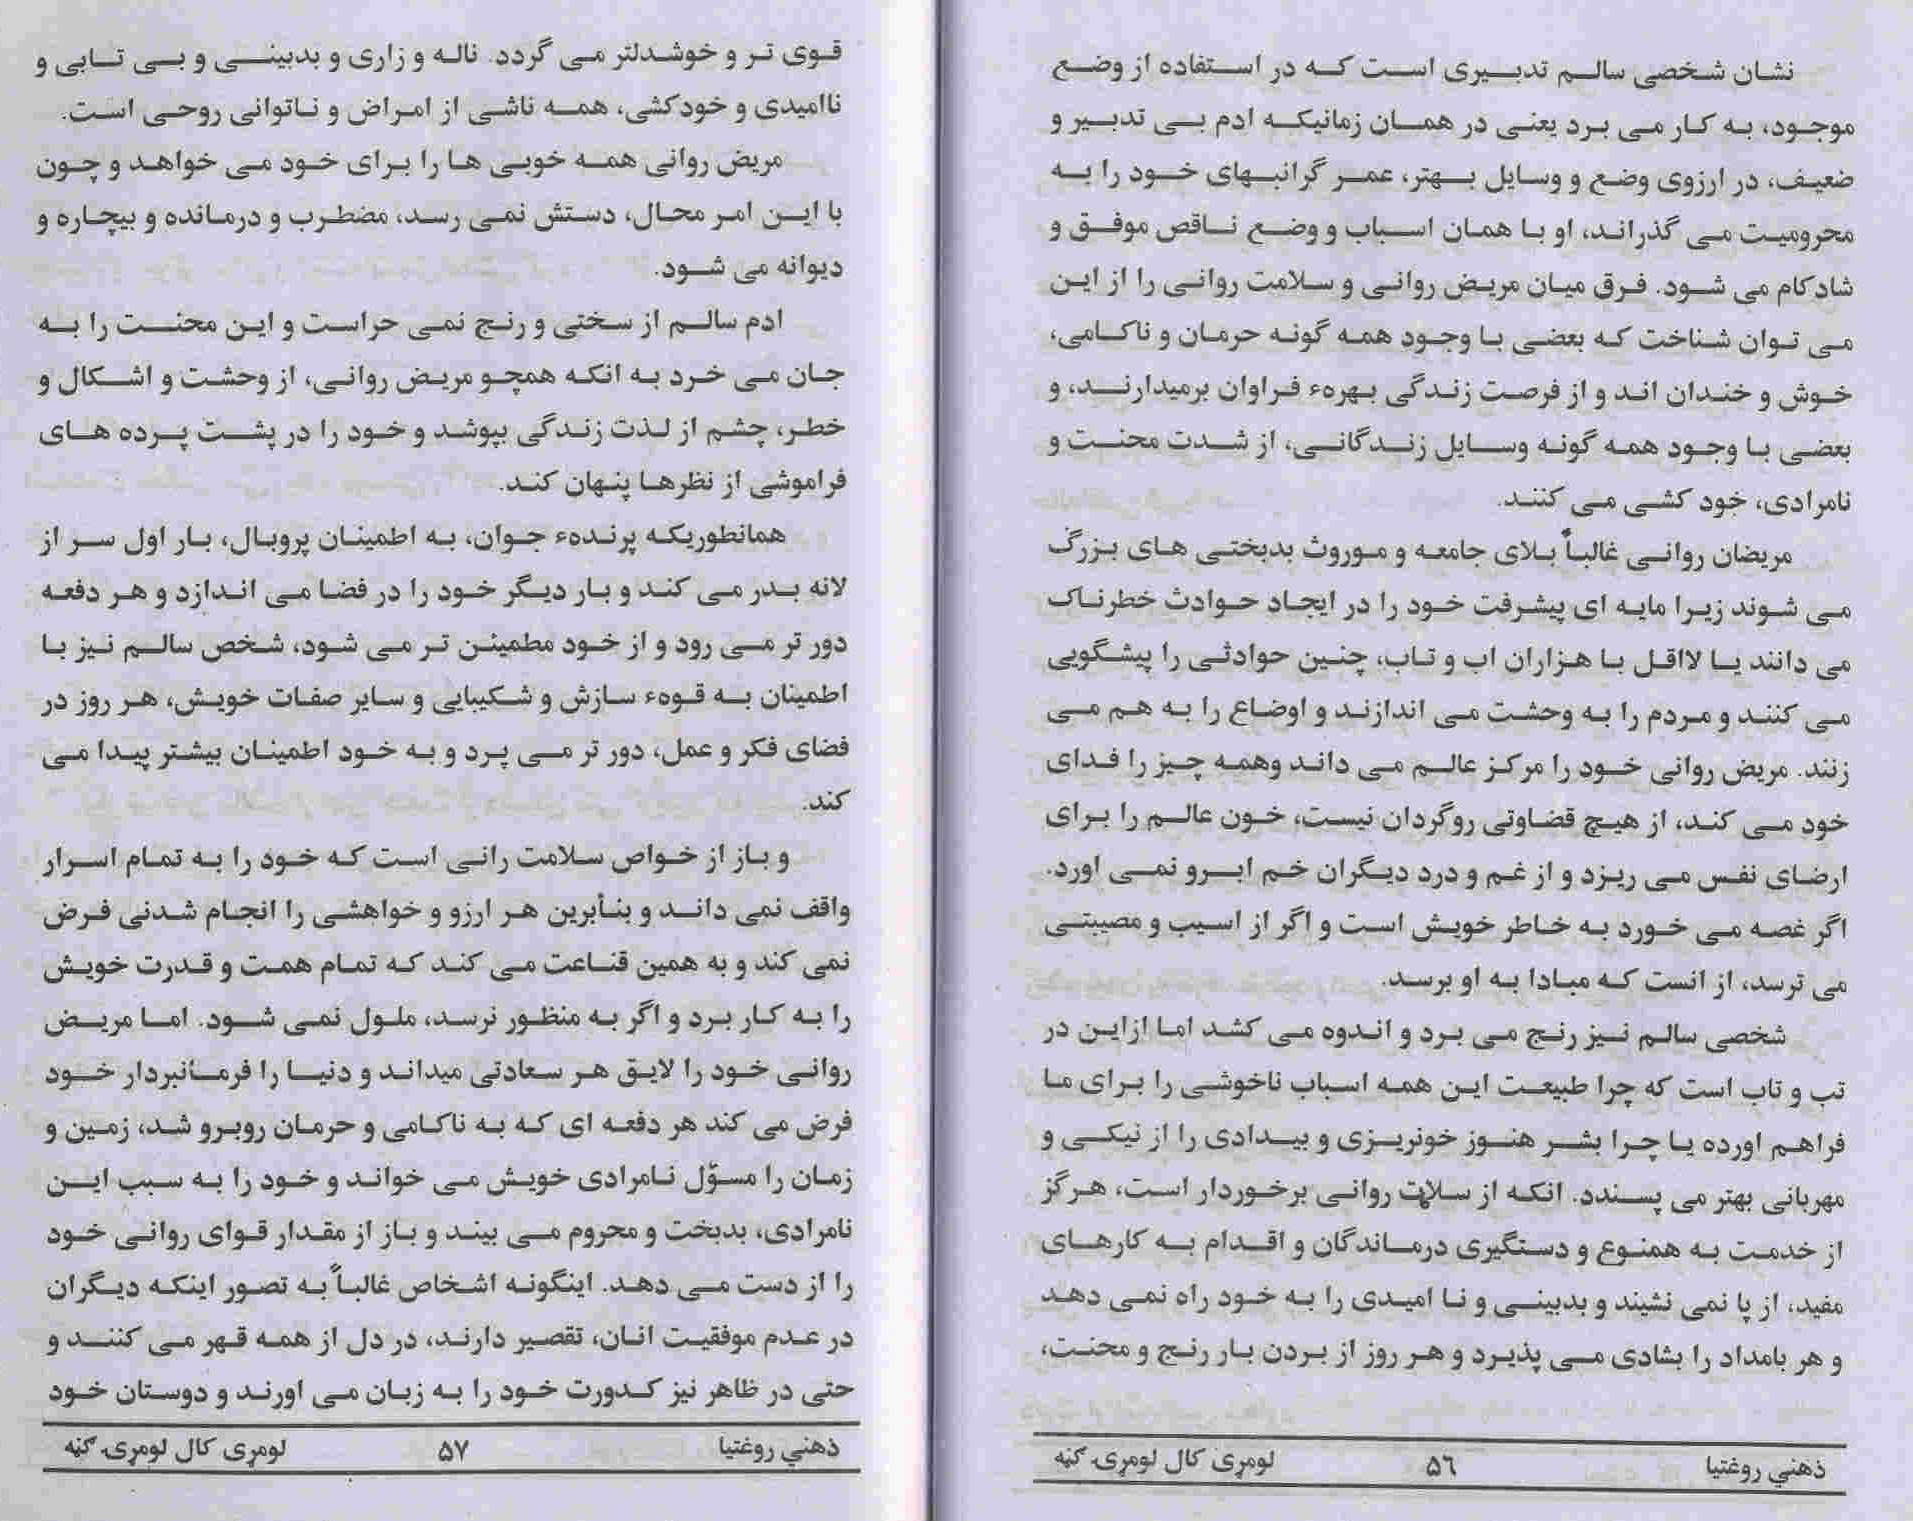 نشان شخصی سالم تدبیری است که در استفاده از وضع
موجود، به کار می برد یعنی در همان زمانیکه ادم بی تدبیر و
ضعیف، در ارزوی وضع و وسایل بهتر، عمر گرانبهای خود را به
محرومیت می گذراند، او با همان اسباب و وضع ناقص موفق و
شادکام می شود. فرق میان مریض روانی و سلامت روانی را از این
می توان شناخت که بعضی با وجود همه گونه حرمان و ناکامی،
خوش و خندان اند و از فرصت زندگی بهرهء فراوان برمیدارند، و
بعضی با وجود همه گونه وسایل زندگانی، از شدت محنت و
نامرادی، خود کشی می کنند.
مریضان روانی غالباً بلای جامعه و موروث بدبختی های بزرگ
می شوند زیرا مایه ای پیشرفت خود را در ایجاد حوادث خطرناک
می دانند یا لااقل با هزاران اب و تاب، چنین حوادثی را پیشگویی
می کنند و مردم را به وحشت می اندازند و اوضاع را به هم می
زنند. مریض روانی خود را مرکز عالم می داند وهمه چیز را فدای
خود می کند، از هیچ قضاوتی روگردان نیست، خون عالم را برای
ارضای نفس می ریزد و از غم و درد دیگران خم ابرو نمی اورد.
اگر غصه می خورد به خاطر خویش است و اگر از اسیب و مصیبتی
می ترسد، از انست که مبادا به او برسد.
شخصی سالم نیز رنج می برد و اندوه می کشد اما ازاین در
تب و تاب است که چرا طبیعت این همه اسباب ناخوشی را برای ما
فراهم اورده یا چرا بشر هنوز خونریزی و بیدادی را از نیکی و
مهربانی بهتر می پسندد. انکه از سلامت روانی برخوردار است، هرگز
از خدمت به همنوع و دستگیری درماندگان و اقدام به کارهای
مفید، از پا نمی نشیند و بدبینی و نا امیدی را به خود راه نمی دهد
و هر بامداد را بشادی می پذیرد و هر روز از بردن بار رنج و محنت،
ذهني روغتيا ٥٦ لومړی کال لومړۍ ګڼه
قوی تر و خوشدلتر می گردد. ناله و زاری و بدبینی و بی تابی و
ناامیدی و خودکشی، همه ناشی از امراض و ناتوانی روحی است.
مریض روانی همه خوبی ها را برای خود می خواهد و چون
با این امر محال، دستش نمی رسد، مضطرب و درمانده و بیچاره و
دیوانه می شود.
ادم سالم از سختی و رنج نمی حراست و این محنت را به
جان می خرد به انکه همچو مریض روانی، از وحشت و اشکال و
خطر، چشم از لذت زندگی بپوشد و خود را در پشت پرده های
فراموشی از نظرها پنهان کند.
همانطوریکه پرندهء جوان، به اطمینان پروبال، بار اول سر از
لانه بدر می کند و بار دیگر خود را در فضا می اندازد و هر دفعه
دور تر می رود و از خود مطمئن تر می شود، شخص سالم نیز با
اطمینان به قوهء سازش و شکیبایی و سایر صفات خویش، هر روز در
فضای فکر و عمل، دور تر می پرد و به خود اطمینان بیشتر پیدا می
کند.
و باز از خواص سلامت رانی است که خود را به تمام اسرار
واقف نمی داند و بنأبرین هر ارزو و خواهشی را انجام شدنی فرض
نمی کند و به همین قناعت می کند که تمام همت و قدرت خویش
را به کار برد و اگر به منظور نرسد، ملول نمی شود. اما مریض
روانی خود را لایق هر سعادتی میداند و دنیا را فرمانبردار خود
فرض می کند هر دفعه ای که به ناکامی و حرمان روبرو شد، زمین و
زمان را مسؤل نامرادی خویش می خواند و خود را به سبب این
نامرادی، بدبخت و محروم می بیند و باز از مقدار قوای روانی خود
را از دست می دهد. اینگونه اشخاص غالباً به تصور اینکه دیگران
در عدم موفقیت انان، تقصیر دارند، در دل از همه قهر می کنند و
حتی در ظاهر نیز کدورت خود را به زبان می اورند و دوستان خود
ذهني روغتيا ٥٧ لومړی کال لومړۍ ګڼه